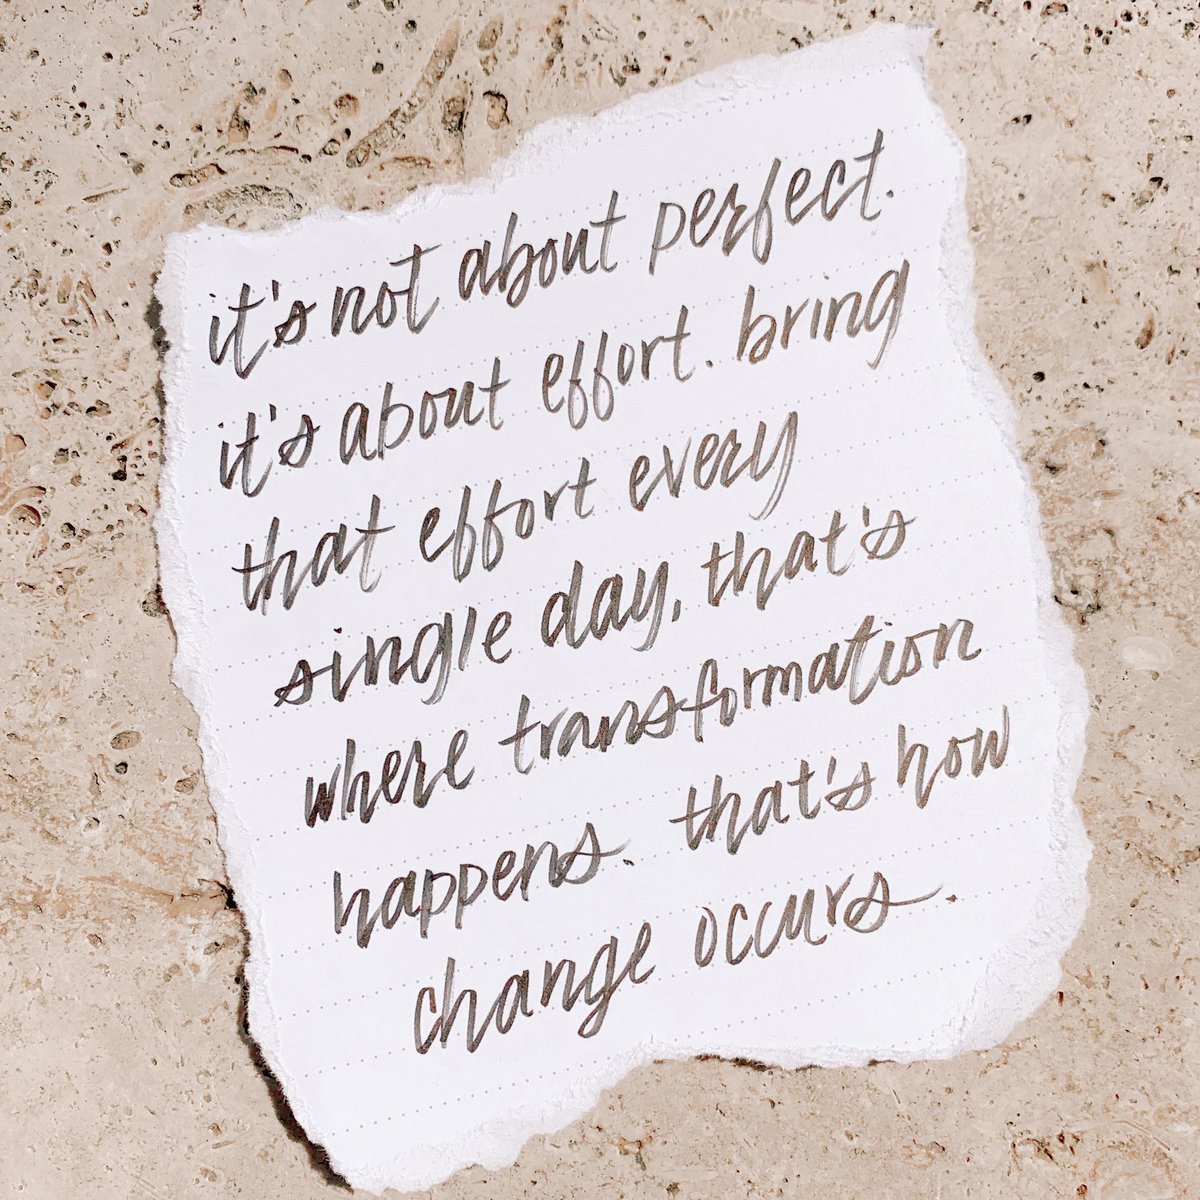 it's not about perfect.
it's about effort. bring
that effort every
single day, that's
where transformation
happens. that's how
change occurs.